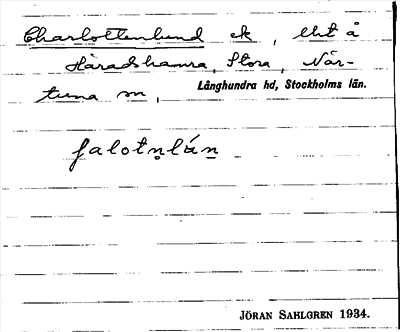 Charlottenlund ek, lht å
Häradshamra, Stora, När-
tuna sn, Långhundra hd, Stockholms län.
ʃalotn̥lán̲
JÖRAN SAHLGREN 1934.